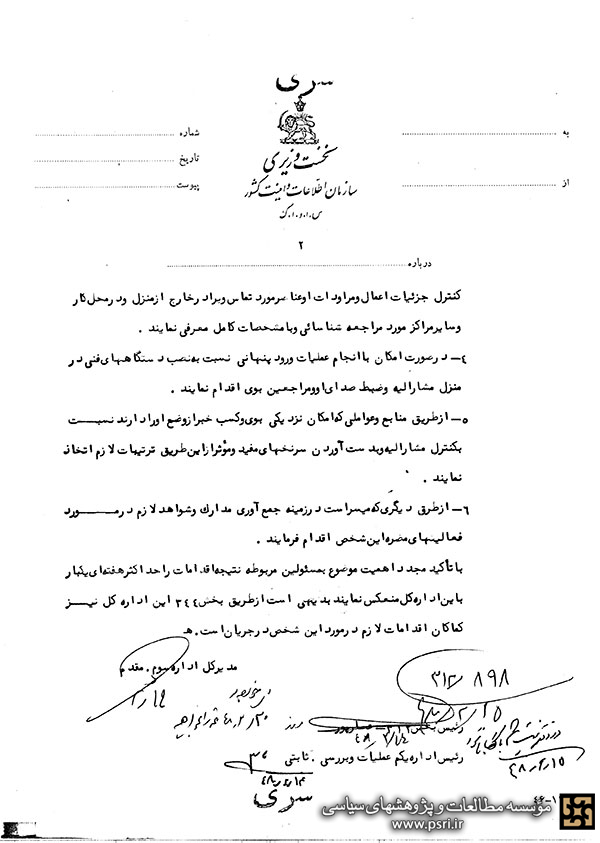 سری
نخست وزیری
سازمان اطلاعات و امنیت کشور
س.ا.و.ا.ک
به
شماره
تاریخ
از
پیوست
۲
درباره
کنترل جزئیات اعمال ومراودات اوعناصرمورد تماس ویراد رخارج ازمنزل ودرمحل کار
وسایرمراکز مورد مراجعه شناسائی وبامشخصات کامل معرفی نمایند .
٤- درصورت امکان باانجام عملیات ورود پنهانی نسبت به نصب دستگاههای فنی در
منزل مشارالیه وضبط صدای اوومراجعین بوی اقدام نمایند .
٥- ازطریق منابع وعواملی که امکان نزدیکی بوی وکسب خبرازوضع اورادارند نسبت
بکنترل مشارالیه وبدست آوردن سرنخهای مفید ومؤثرازاین طریق ترتیبات لازم اتخاذ
نمایند .
٦- ازطرق دیگری که میسراست درزمینه جمع آوری مدارك وشواهد لازم درمورد
فعالیتهای مضره این شخص اقدام فرمایند .
باتأکید مجدد اهمیت موضوع بمسئولین مربوطه نتیجه اقدامات راحداکثرهفته ای یکبار
باین اداره کل منعکس نمایند بدیهی است ازطریق بخش ۳٤٤ این اداره کل نیز
کماکان اقدامات لازم درمورد این شخص درجریان است . هـ
مدیرکل اداره سوم . مقدم
۳۱۲/۸۹۸
۴۸/۲/۱۵
رئیس بخش ۳۱۲
۴۸/۲/۱۴
رئیس اداره یکم عملیات وبررسی . ثابتی
۴۸/۲/۱۴
۴۸/۲/۱۵
سری
موسسه مطالعات و پژوهشهای سیاسی
www.psri.ir